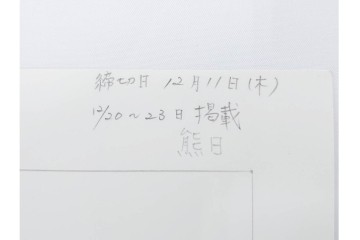 締切日 12月11日(木)
12/20～23日 掲載
熊日